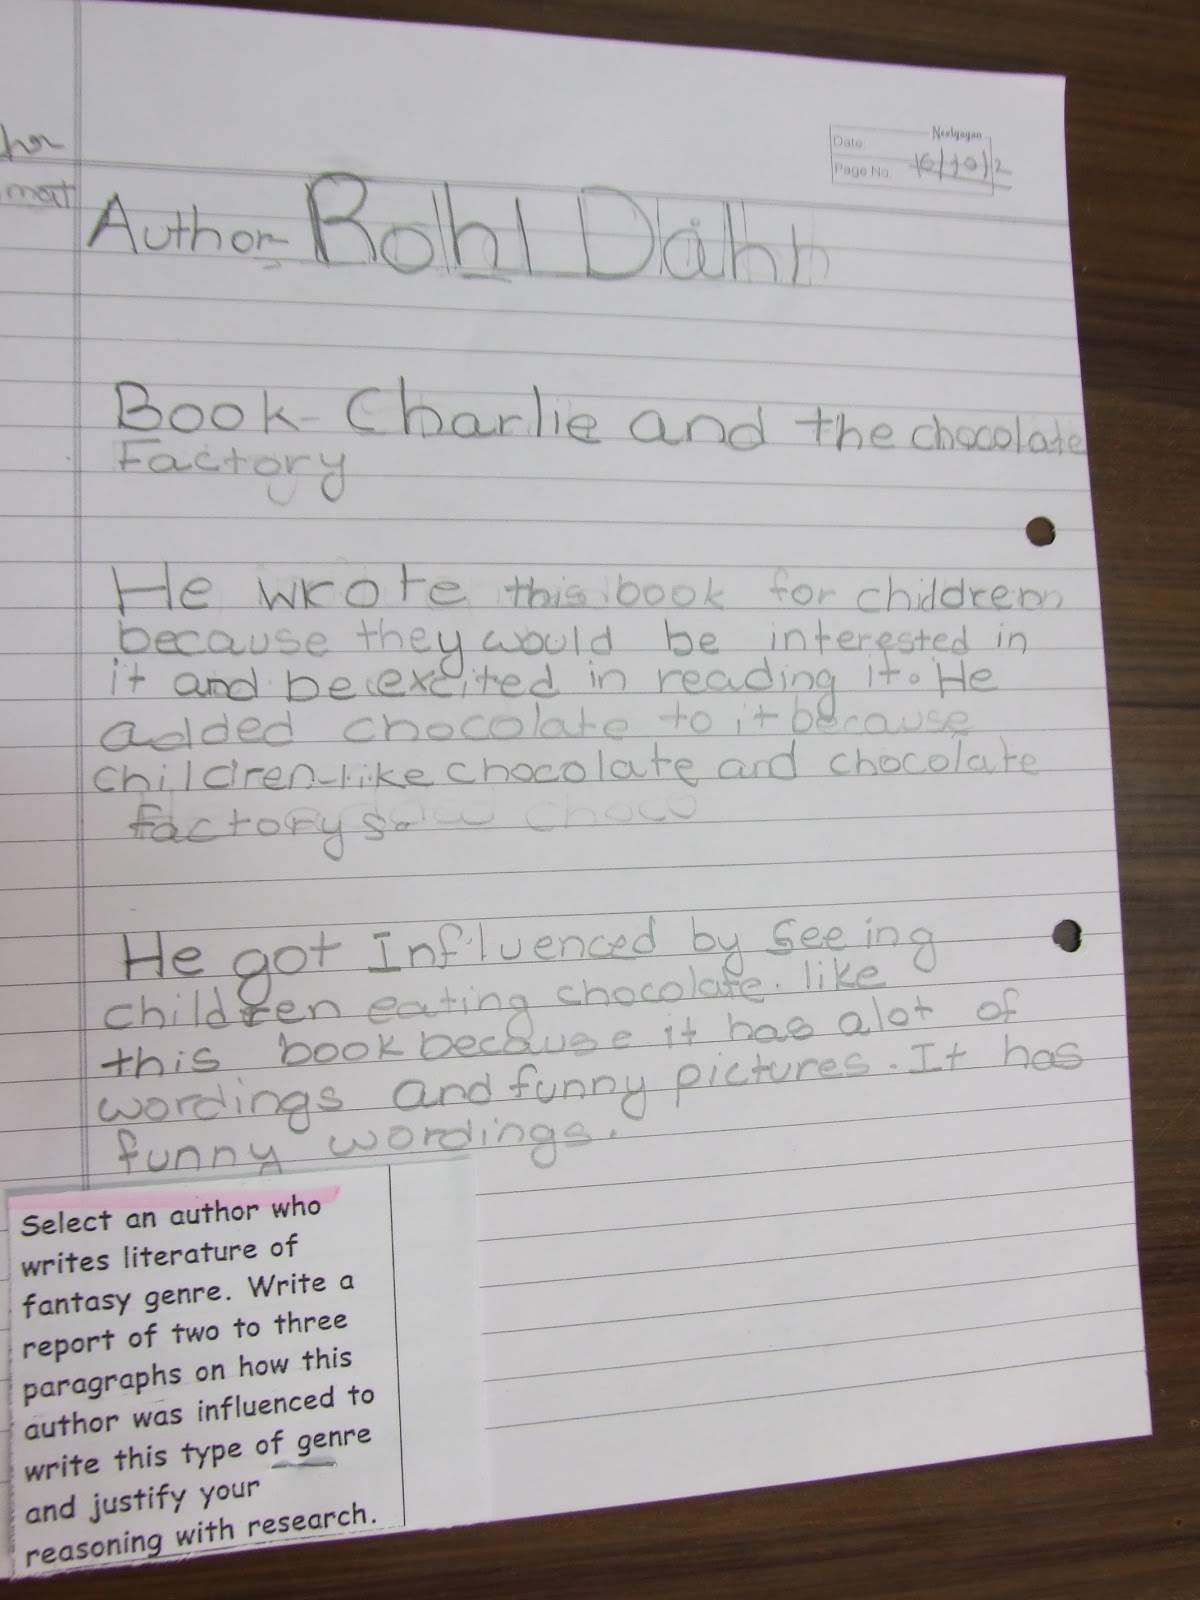 Neelgagan
Date:
Page No. 16/10/12
Author- Rohl Dahh
Book- Charlie and the chocolate
Factory
He wrote this book for children
because they would be interested in
it and be excited in reading it. He
added chocolate to it because
children like chocolate and chocolate
factorys.
He got Influenced by seeing
children eating chocolate. like
this book because it has alot of
wordings and funny pictures. It has
funny wordings.
Select an author who
writes literature of
fantasy genre. Write a
report of two to three
paragraphs on how this
author was influenced to
write this type of genre
and justify your
reasoning with research.